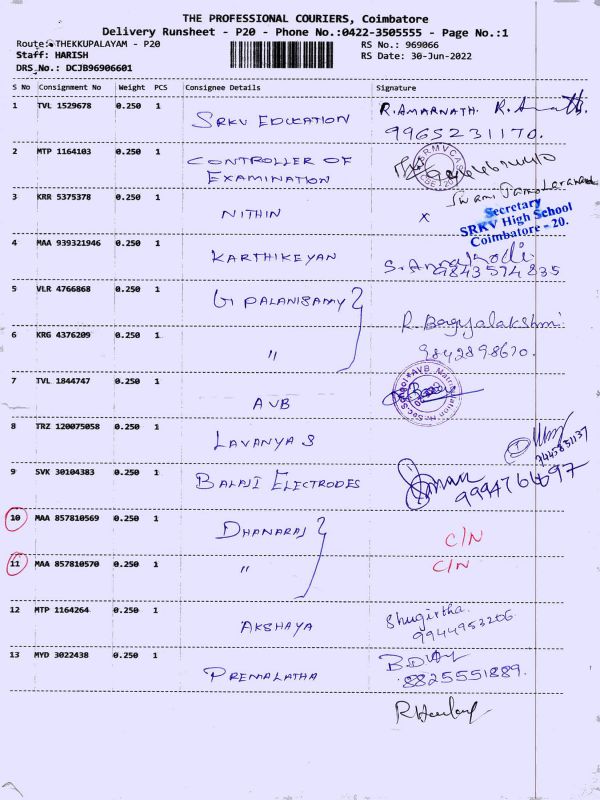 THE PROFESSIONAL COURIERS, Coimbatore
Delivery Runsheet - P20 - Phone No.:0422-3505555 - Page No.:1
Route: THEKKUPALAYAM - P20
Staff: HARISH
DRS No.: DCJB96906601
RS No.: 969066
RS Date: 30-Jun-2022
S No Consignment No Weight PCS Consignee Details Signature
1 TVL 1529678 0.250 1 SRKV EDUCATION R.AMARNATH.
9965231170.
2 MTP 1164103 0.250 1 CONTROLLER OF
EXAMINATION
3 KRR 5375378 0.250 1 NITHIN x
Secretary
SRKV High School
Coimbatore - 20.
4 MAA 939321946 0.250 1 KARTHIKEYAN
9843574835
5 VLR 4766868 0.250 1 G PALANISAMY
6 KRG 4376209 0.250 1 " R. Bagyalakshmi
9842898670.
7 TVL 1844747 0.250 1 AVB
8 TRZ 120075058 0.250 1 LAVANYA S
9 SVK 30104383 0.250 1 BALAJI ELECTRODES
10 MAA 857810569 0.250 1 DHANARAJ C/N
11 MAA 857810570 0.250 1 " C/N
12 MTP 1164264 0.250 1 AKSHAYA Shugirtha.
9944953206
13 MYD 3022438 0.250 1 PREMALATHA
8825551889.